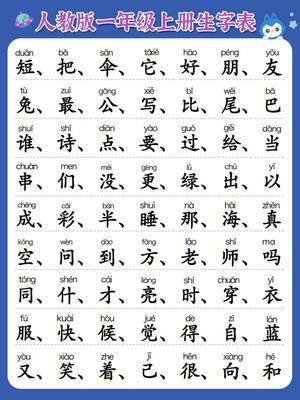 人教版一年级上册生字表
duǎn bǎ sǎn hǎo péng yǒu
短、把、伞、它、好、朋、友
tù zuì gōng xiě bǐ wěi bā
兔、最、公、写、比、尾、巴
shuí shī diǎn yào guò gěi dāng
谁、诗、点、要、过、给、当
chuàn men méi gèng lǜ chū yǐ
串、们、没、更、绿、出、以
chéng cǎi bàn shuì nà hǎi zhēn
成、彩、半、睡、那、海、真
kōng wèn dào fāng lǎo shī ma
空、问、到、方、老、师、吗
tóng shí cái liàng shí chuān yī
同、什、才、亮、时、穿、衣
fú kuài hòu jué de zì lán
服、快、候、觉、得、自、蓝
yòu xiào zhe jǐ hěn xiàng hé
又、笑、着、己、很、向、和